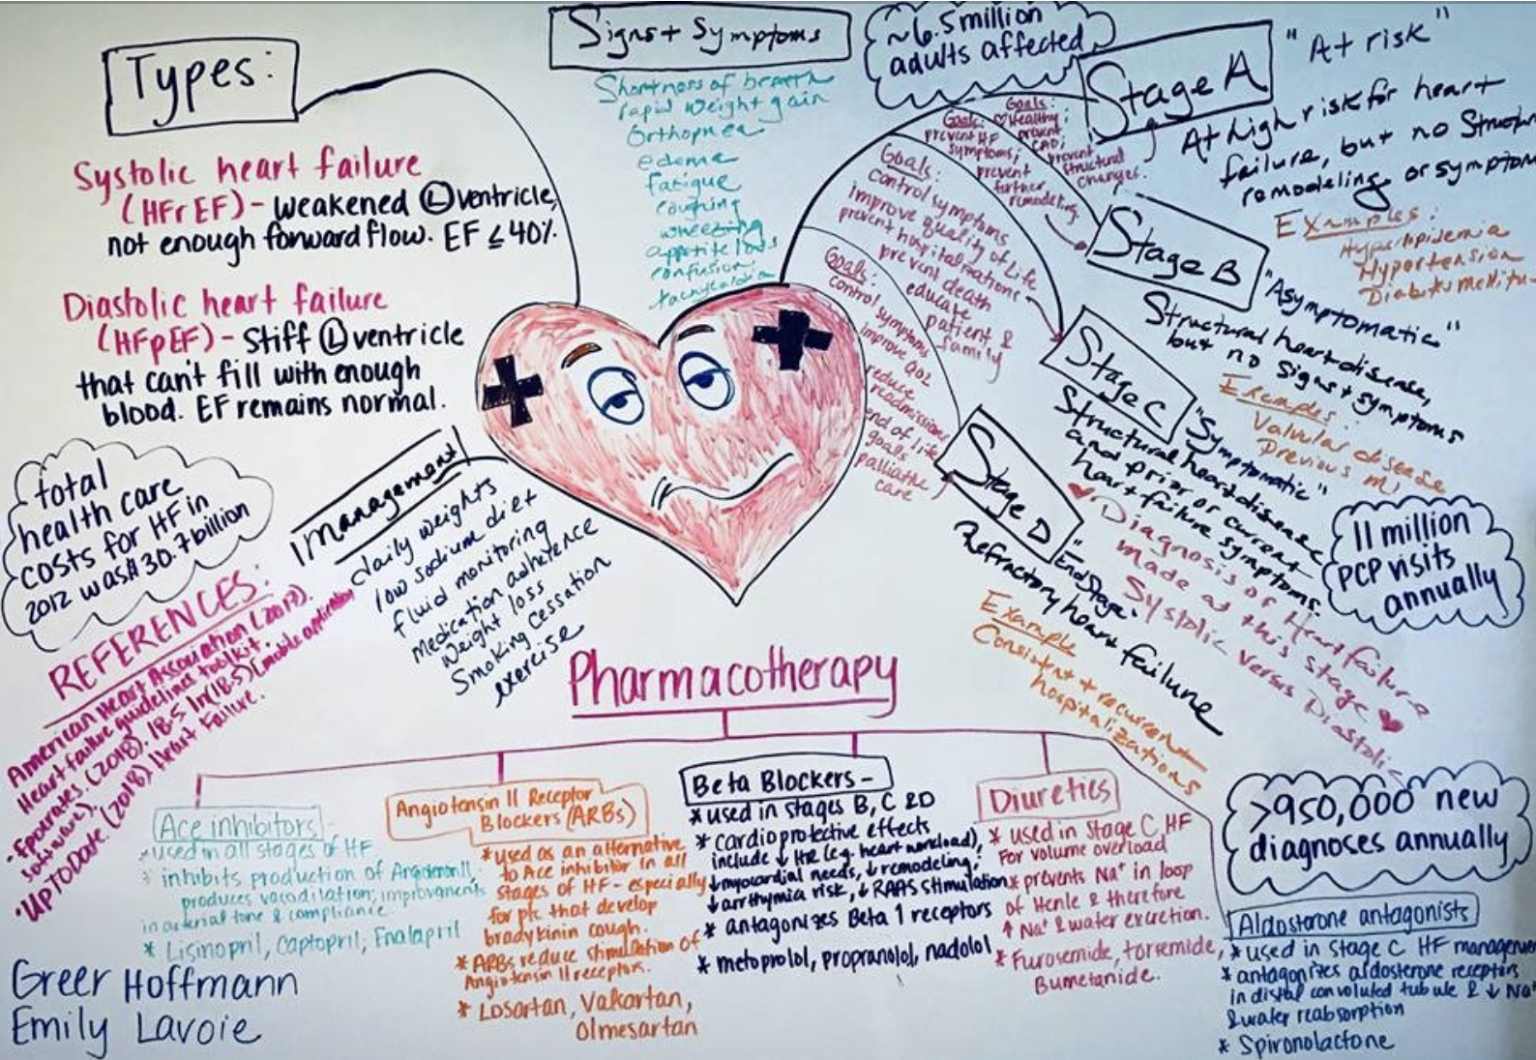 Types:
Systolic heart failure
(HFrEF) - weakened Ⓛ ventricle,
not enough forward flow. EF ≤ 40%.
Diastolic heart failure
(HFpEF) - Stiff Ⓛ ventricle
that can't fill with enough
blood. EF remains normal.
Signs + Symptoms
Shortness of breath
rapid weight gain
Orthopnea
edema
fatigue
coughing
wheezing
appetite loss
confusion
tachycardia
~6.5 million
adults affected
Stage A
"At risk"
At high risk for heart
failure, but no Structu
remodeling or symptom
Examples:
Hyperlipidemia
Hypertension
Diabetes mellitu
Goals:
♡Healthy;
prevent
CAD;
prevent
structural
changes.
Stage B
"Asymptomatic"
Structural heart disease,
but no signs + symptoms
Examples:
Valvular disease
Previous MI
Goals:
prevent HF
symptoms;
prevent
further
remodeling.
Stage C
"Symptomatic"
Structural heart disease
and prior or current
heart failure symptoms.
♥ Diagnosis of Heart failure
made at this stage ♥
Systolic versus Diastolic
Goals:
control symptoms
improve quality of life
prevent hospitalizations
prevent death
educate
patient &
family
Stage D
"End Stage"
Refractory heart failure
Example
Consistent + recurrent
hospitalizations
Goals:
control symptoms
improve QOL
reduce
readmissions
end of life
goals
palliative
care
11 million
PCP visits
annually
total
health care
costs for HF in
2012 was $30.7 billion
Management
daily weights
low sodium diet
fluid monitoring
Medication adherence
Weight loss
Smoking cessation
exercise
REFERENCES:
American Heart Association (2017).
Heart failure guidelines toolkit.
· Epocrates. (2018). 18.5 In (18.5) [mobile application
software].
· UPTODate. (2018) Heart Failure.
Pharmacotherapy
Ace inhibitors -
*used in all stages of HF
* inhibits production of Angiotensin II,
produces vasodilation; improvements
in arterial tone & compliance.
* Lisinopril, Captopril, Enalapril
Angiotensin II Receptor
Blockers (ARBs)
*used as an alternative
to Ace inhibitor in all
stages of HF - especially
for pts that develop
bradykinin cough.
* ARBs reduce stimulation of
Angiotensin II receptors.
* Losartan, Valsartan,
Olmesartan
Beta Blockers -
*used in stages B, C & D
*cardioprotective effects
include ↓ HR (e.g. heart workload),
↓ myocardial needs, ↓ remodeling,
↓ arrthymia risk, ↓ RAAS stimulation
* antagonizes Beta 1 receptors
* metoprolol, propranolol, nadolol
Diuretics
* used in Stage C HF
for volume overload
* prevents Na⁺ in loop
of Henle & therefore
↑ Na⁺ & water excretion.
* Furosemide, torsemide,
Bumetanide.
>950,000 new
diagnoses annually
Aldosterone antagonists
*used in stage C HF managemen
* antagonizes aldosterone receptors
in distal convoluted tubule & ↓ Na⁺
& water reabsorption
* Spironolactone
Greer Hoffmann
Emily Lavoie